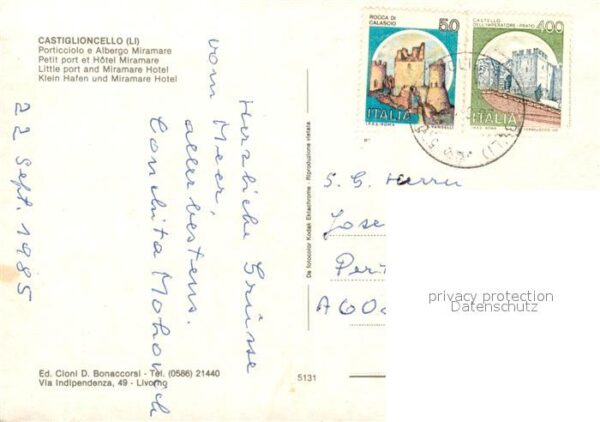 CASTIGLIONCELLO (LI)
Porticciolo e Albergo Miramare
Petit port et Hôtel Miramare
Little port and Miramare Hotel
Klein Hafen und Miramare Hotel
ROCCA DI
CALASCIO
50
ITALIA
CASTELLO
DELL'IMPERATORE - PRATO
400
ITALIA
Herzliche Grüsse
vom Meer,
allerbestens.
Conchita
22 Sept. 1985
De fotocolor Kodak Ektachrome - Riproduzione vietata
S. G. Herrn
Jose
Per
A60
privacy protection
Datenschutz
Ed. Cioni D. Bonaccorsi - Tel. (0586) 21440
Via Indipendenza, 49 - Livorno
5131